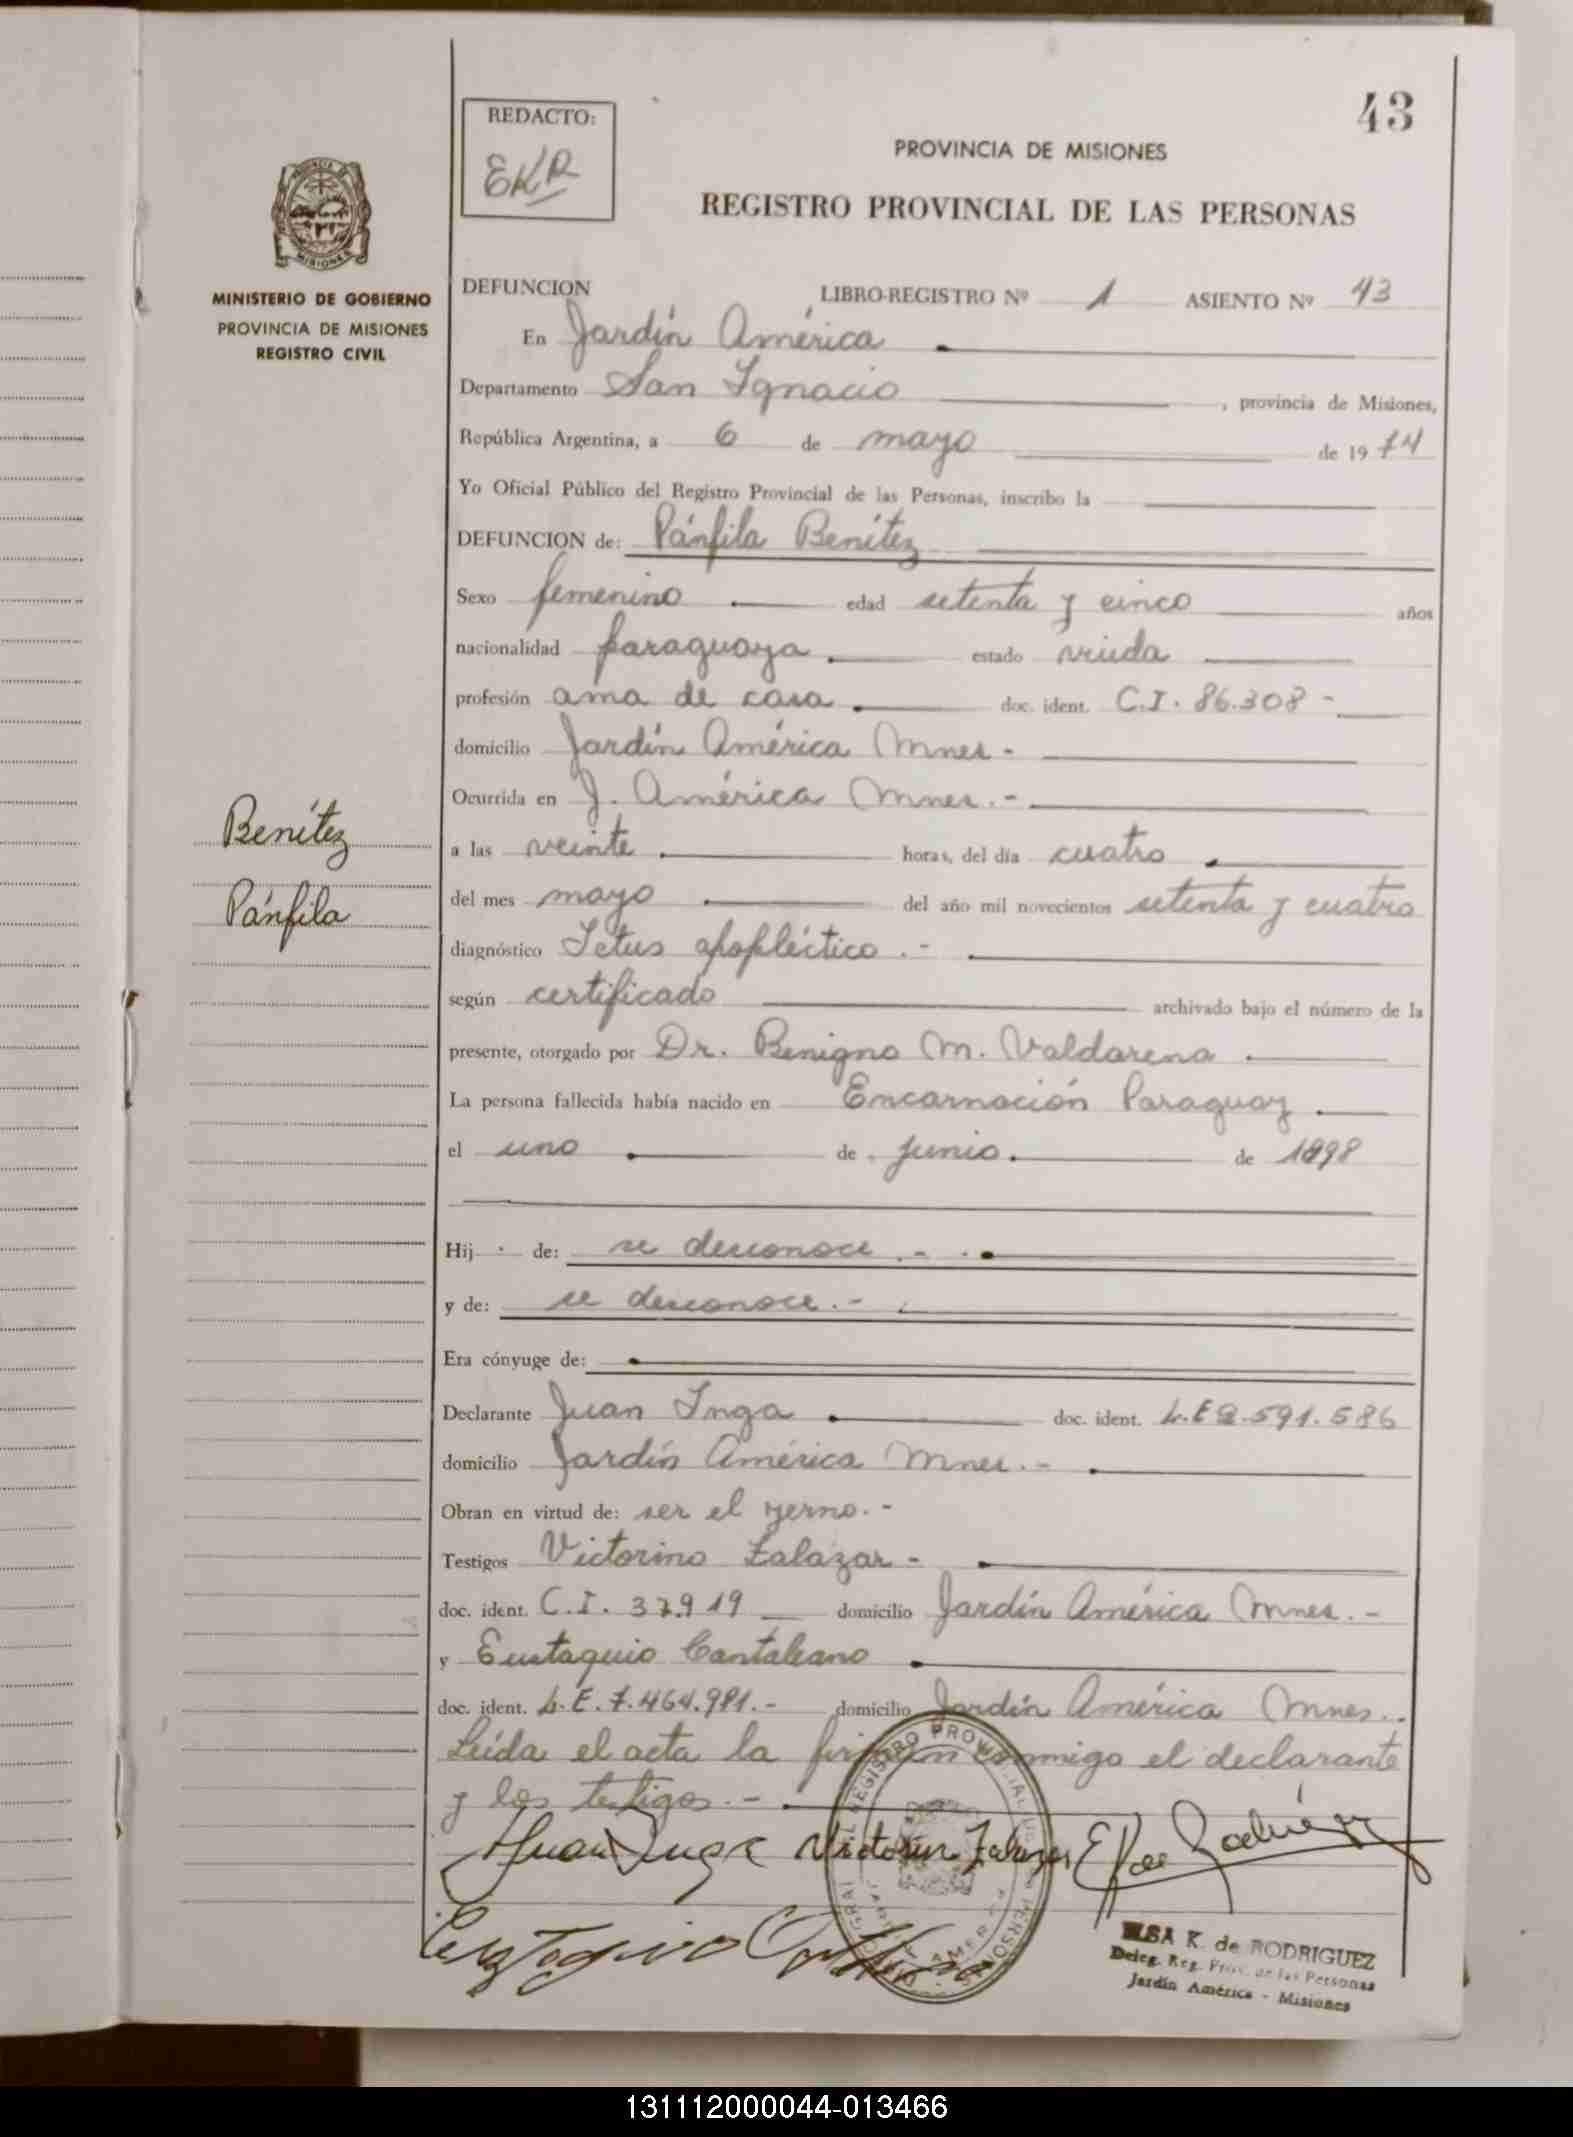 43
REDACTO:
EKR
PROVINCIA DE MISIONES
REGISTRO PROVINCIAL DE LAS PERSONAS
MINISTERIO DE GOBIERNO
PROVINCIA DE MISIONES
REGISTRO CIVIL
DEFUNCION LIBRO-REGISTRO Nº 1 ASIENTO Nº 43
En Jardín América
Departamento San Ignacio , provincia de Misiones,
República Argentina, a 6 de mayo de 1974
Yo Oficial Público del Registro Provincial de las Personas, inscribo la
DEFUNCION de: Pánfila Benítez
Sexo femenino edad setenta y cinco años
nacionalidad paraguaya estado viuda
profesión ama de casa doc. ident. C.I. 86.308 -
domicilio Jardín América Mnes -
Ocurrida en J. América Mnes. -
Benítez
a las veinte horas, del día cuatro
Pánfila
del mes mayo del año mil novecientos setenta y cuatro
diagnóstico Ictus apopléctico . -
según certificado archivado bajo el número de la
presente, otorgado por Dr. Benigno M. Valdarena
La persona fallecida había nacido en Encarnación Paraguay
el uno de junio de 1898
Hij de: se desconoce . -
y de: se desconoce. -
Era cónyuge de:
Declarante Juan Inga doc. ident. L.E 2.591.586
domicilio Jardín América Mnes. -
Obran en virtud de: ser el yerno. -
Testigos Victorino Zalazar -
doc. ident. C.I. 37.919 domicilio Jardín América Mnes. -
y Eustaquio Cantaleano
doc. ident. L.E. 7.464.981. - domicilio Jardín América Mnes..
Leída el acta la firman conmigo el declarante
y los testigos. -
Juan Inga Victorin Zalazar E K de Rodríguez
Eustaquio
REGISTRO PROVINCIAL PERSONAS
JARDIN AMERICA
ELSA K. de RODRIGUEZ
Deleg. Reg. Prov. de las Personas
Jardín América - Misiones
131112000044-013466